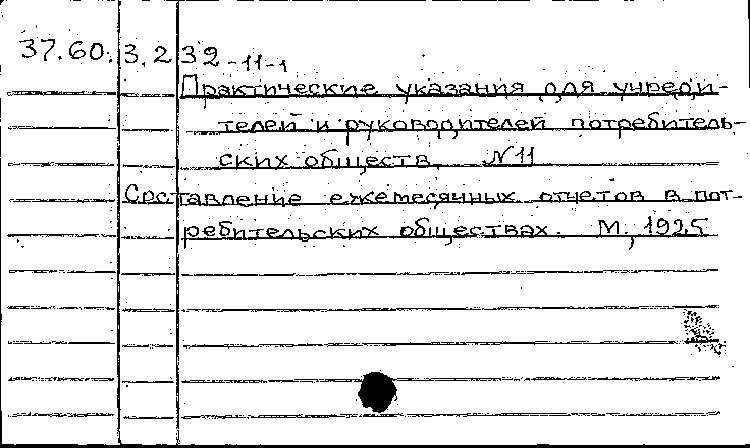 37.60.3.2 32-11-1
Практические указания для учреди-
телей и руководителей потребитель-
ских обществ. N 11
Составление ежемесячных отчетов в пот-
ребительских обществах. М., 1925